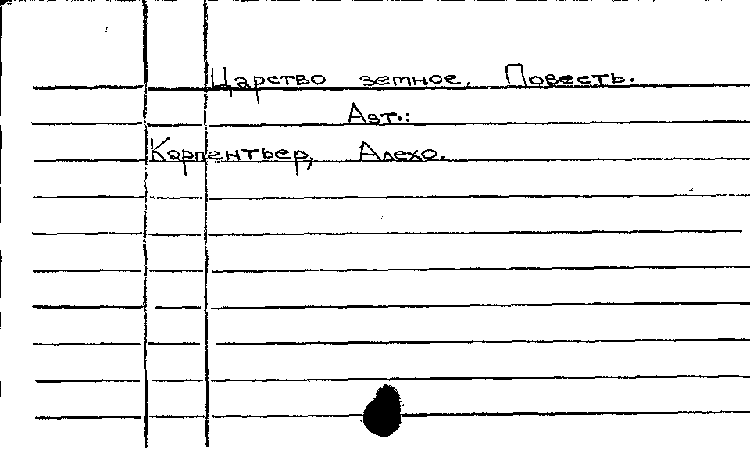 Царство земное. Повесть.
Авт.:
Карпентьер, Алехо.